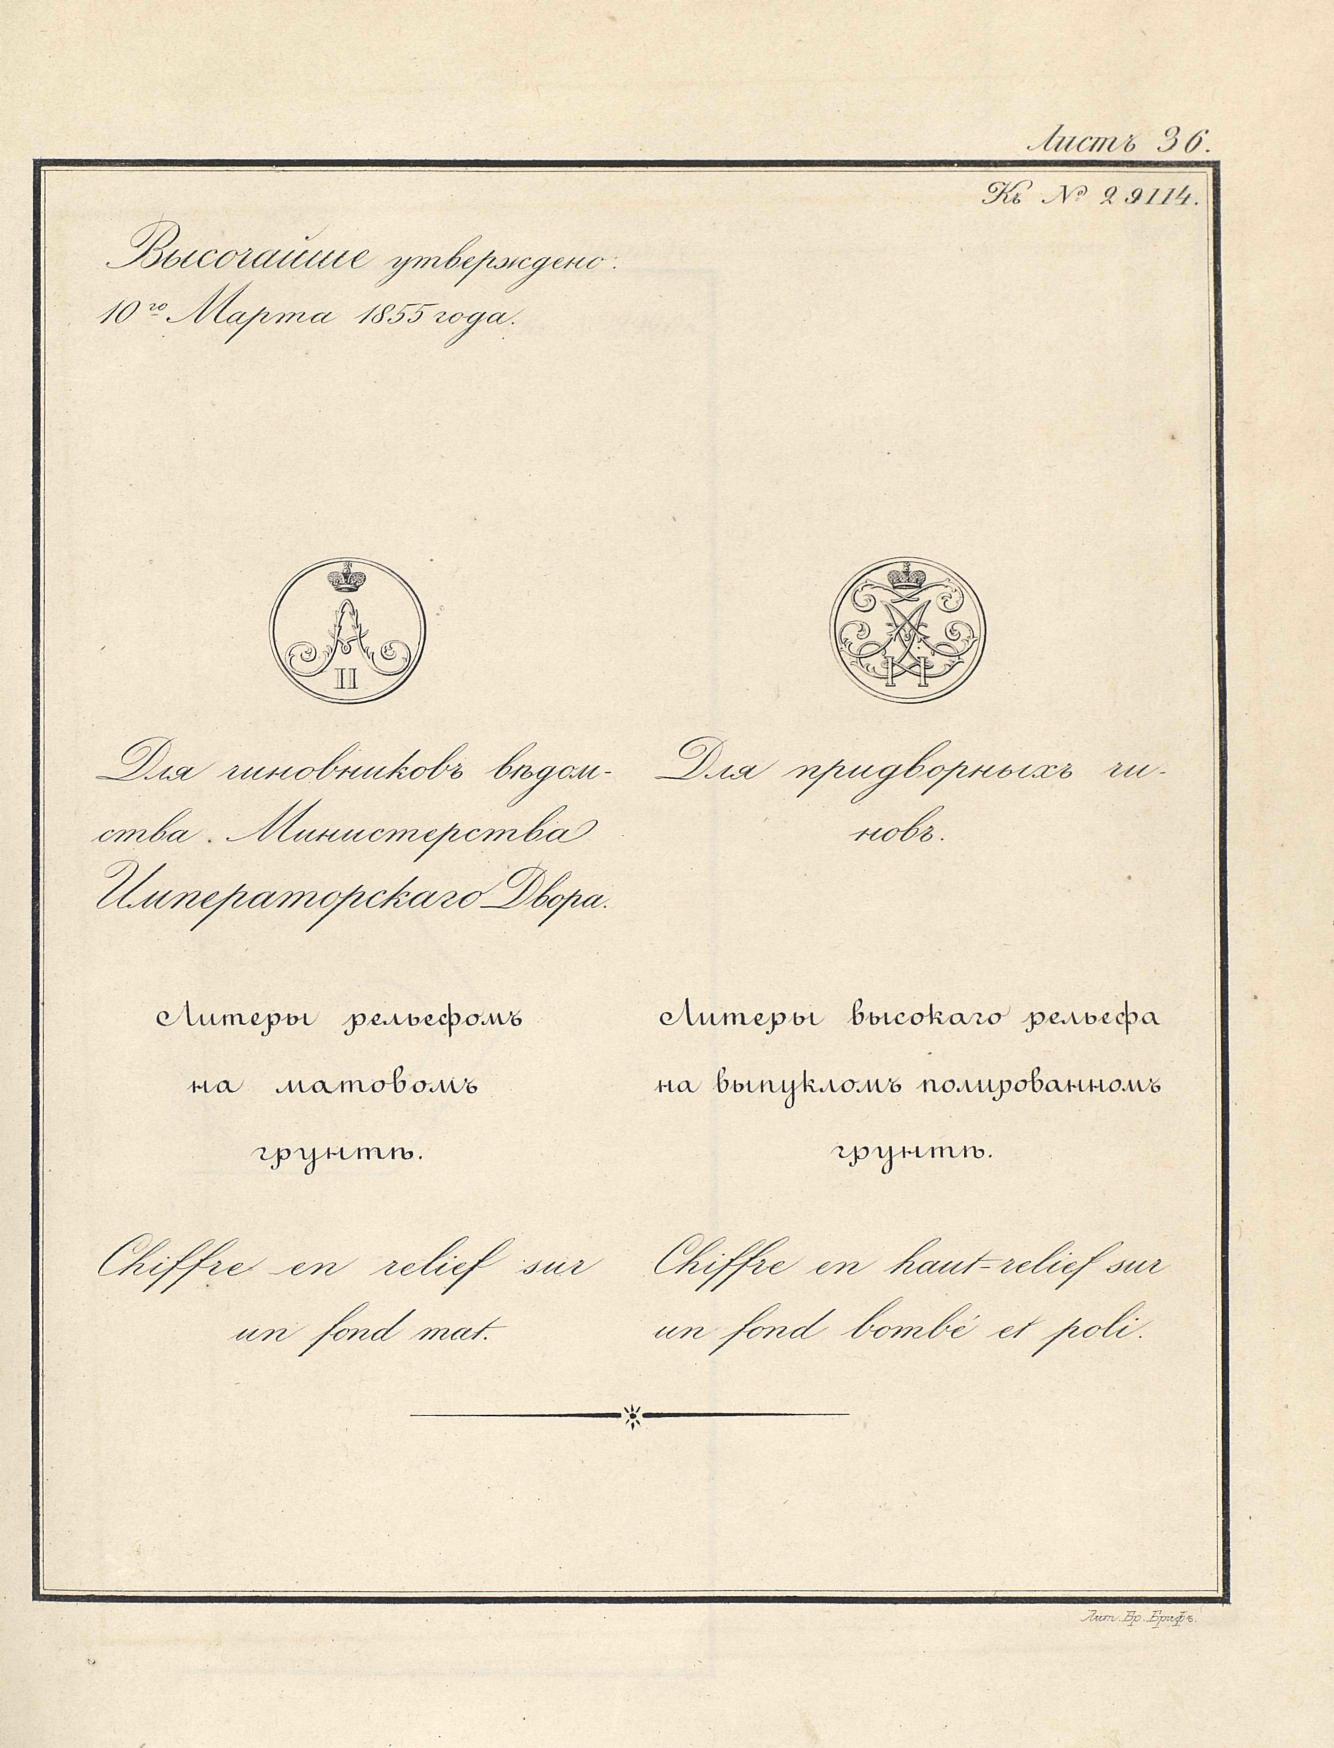 Листъ 36.
Къ № 29114.
Высочайше утверждено:
10го Марта 1855 года.
А
II
А
II
Для чиновниковъ вѣдом-
ства Министерства
Императорскаго Двора.
Для придворныхъ чи-
новъ.
Литеры рельефомъ
на матовомъ
грунтѣ.
Литеры высокаго рельефа
на выпукломъ полированномъ
грунтѣ.
Chiffre en relief sur
un fond mat.
Chiffre en haut-relief sur
un fond bombé et poli.
Лит. Бр. Брифъ.